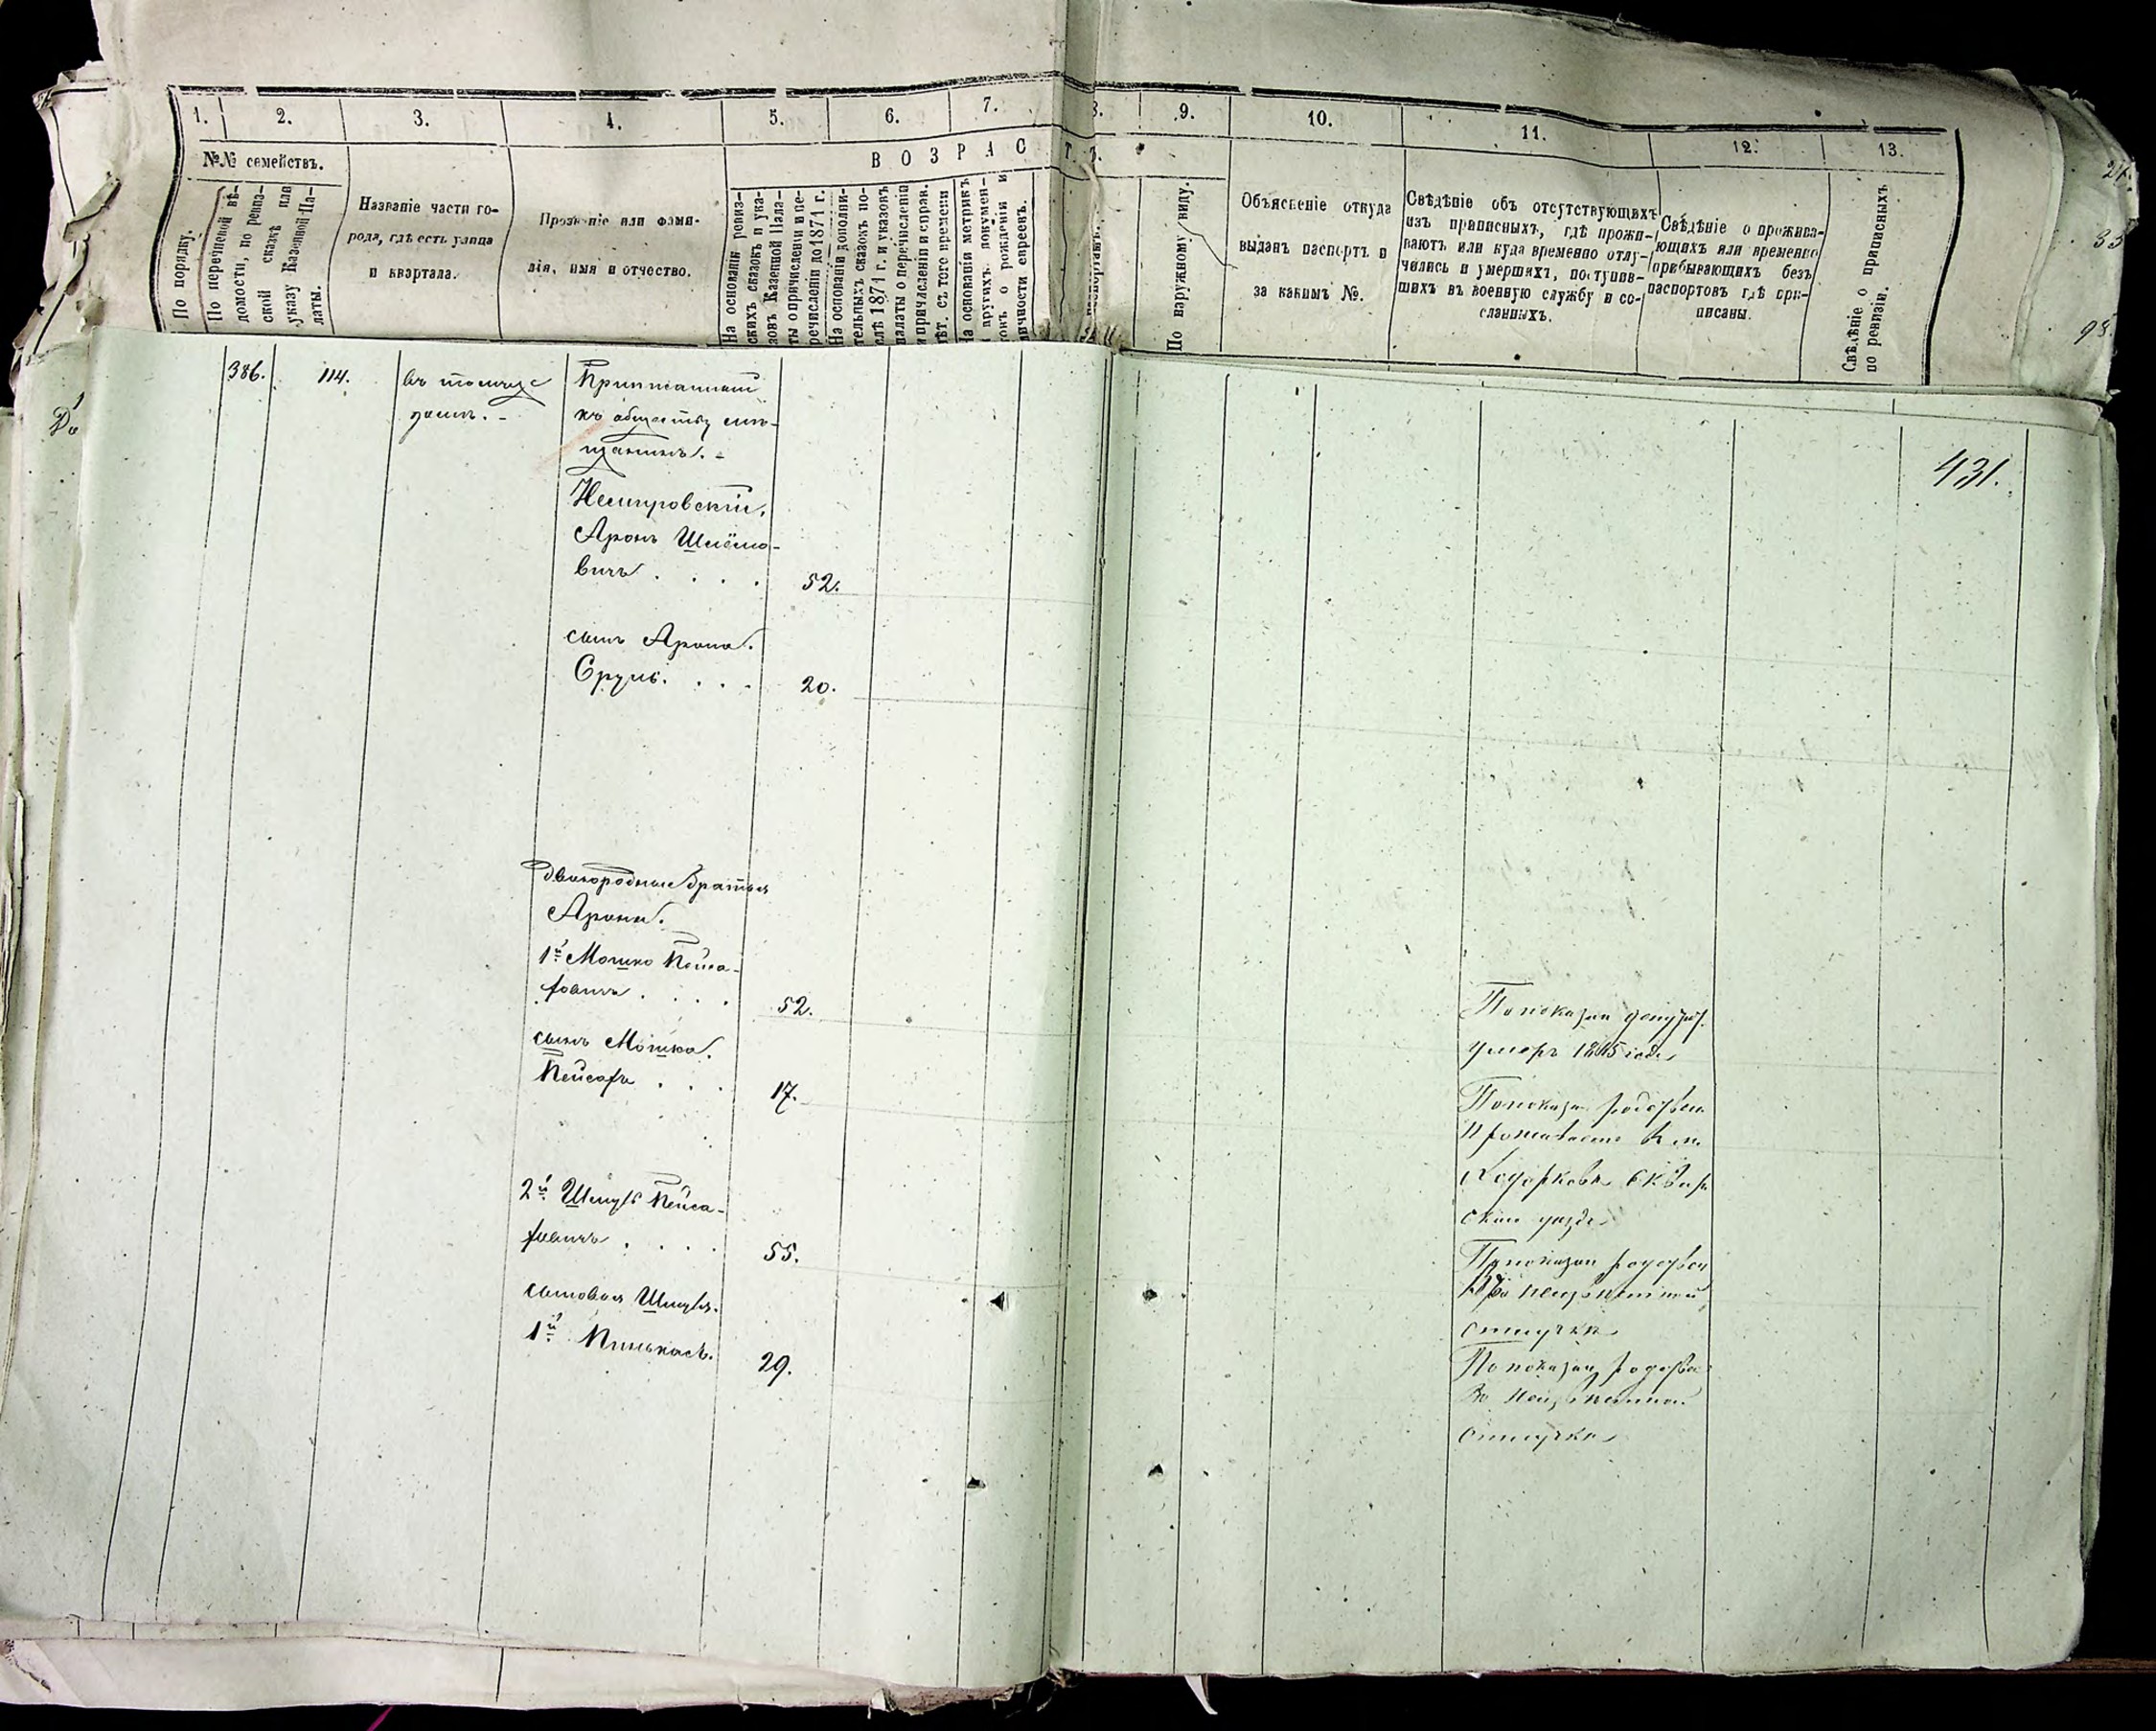 1. 2. 3. 4. 5. 6. 7. 8. 9. 10. 11. 12. 13.
№№ семействъ.
ВОЗРАСТЪ.
По порядку.
По перечневой вѣ-
домости, по ревиз-
ской сказкѣ или
указу Казенной Па-
латы.
Названіе части го-
рода, гдѣ есть улица
и квартала.
Прозваніе или фами-
лія, имя и отчество.
На основаніи ревиз-
скихъ сказокъ и ука-
зовъ Казенной Пала-
ты о причисленіи и пе-
речисленіи до 1871 г.
На основаніи дополни-
тельныхъ сказокъ по-
слѣ 1871 г. и указовъ
палаты о перечисленіи
и причисленіи и справ.
лѣт. съ того времени
На основаніи метрикъ
и другихъ докумен-
товъ о рожденіи и
личности евреевъ.
По наружному виду.
Объясненіе откуда
выданъ паспортъ и
за какимъ №.
Свѣдѣніе объ отсутствующихъ
изъ приписныхъ, гдѣ прожи-
ваютъ или куда временно отлу-
чились и умершихъ, поступив-
шихъ въ военную службу и со-
сланныхъ.
Свѣдѣніе о прожива-
ющихъ или временно
прибывающихъ безъ
паспортовъ гдѣ при-
писаны.
Свѣдѣніе о приписныхъ
по ревизіи.
386. 114.
431.
къ обществу мѣ-
щанинъ.
Немировскій.
Аронъ Шлёмо-
вичъ . . . . 52.
сынъ Арона.
Сруль. . . . 20.
двоюродные братья
Арона.
1й Мошко Пейса-
ховичъ . . . . 52.
сынъ Мошка.
Пейсахъ . . . 17.
2й Шмуль Пейса-
ховичъ . . . . 55.
сыновья Шмуля.
1й Пинькасъ. 29.
По показан депут
умеръ 1845 года
По показан родствен
проживаетъ въ м.
Ходорковѣ Сквир
скаго уѣзда
По показан родствен
въ неизвѣстной
отлучкѣ
По показан родствен
въ неизвѣстной
отлучкѣ